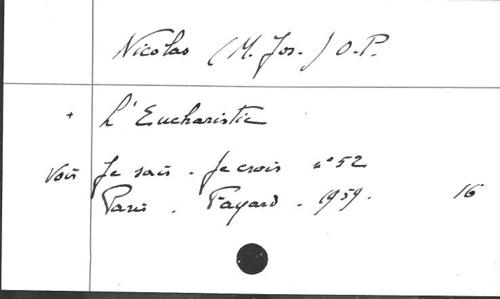 Nicolas (M. Jos.) O.P.
+ L'Eucharistie
Voir Je sais - Je crois n° 52
Paris - Fayard - 1959. 16